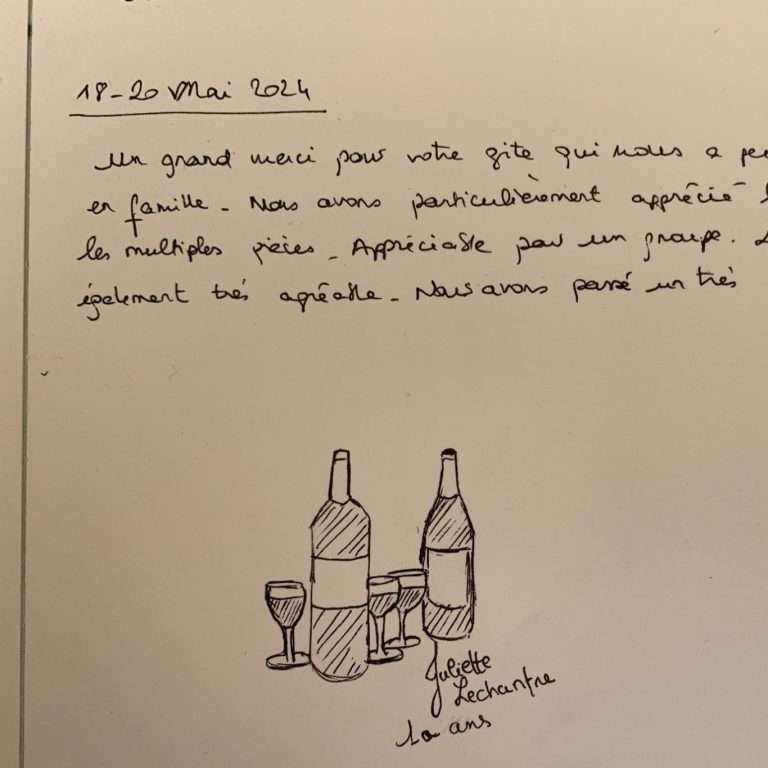 18-20 Mai 2024
Un grand merci pour votre gite qui nous a
en famille. Nous avons particulièrement apprécié
les multiples pièces. Appréciable pour un groupe.
également très agréable. Nous avons passé un très
Juliette
Lechantre
10 ans